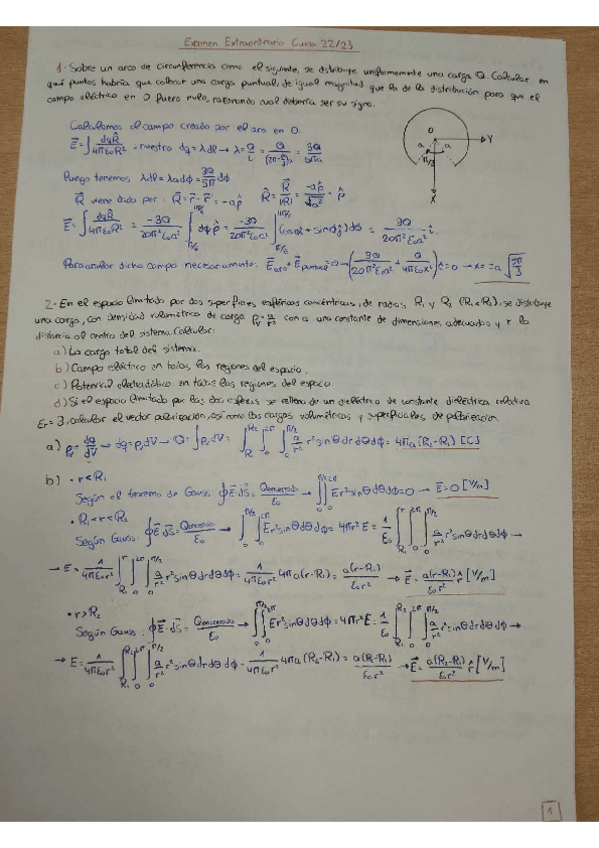 Examen Extraordinario Curso 22/23
1- Sobre un arco de circunferencia como el siguiente, se distribuye uniformemente una carga Q. Calcular en
qué puntos habría que colocar una carga puntual de igual magnitud que la de la distribución para que el
campo eléctrico en O fuera nulo, razonando cual debería ser su signo.
Calculamos el campo creado por el aro en O.
O
Y
a
a
π/3
X
E⃗ = ∫ dqR̂/4πε₀R² → nuestro dq = λdl → λ = Q/L =
Luego tenemos λdl = λadϕ = 3Q/5π dϕ
R⃗ viene dado por: R⃗ = r⃗ - r⃗' = -aρ̂ R̂ = R⃗/|R⃗| =
E⃗ = ∫ dqR̂/4πε₀R² = -3Q/20π²ε₀a² ∫ dϕρ̂ = -3Q/20π²ε₀a²
Para anular dicho campo necesariamente: E⃗aro +
2- En el espacio limitado por dos superficies esféricas concéntricas, de radios R₁ y R₂ (R₁<R₂), se distribuye
una carga, con densidad volumétrica de carga ρv = a/r² con a una constante de dimensiones adecuadas y r la
distancia al centro del sistema. Calcular:
a) La carga total del sistema.
b) Campo eléctrico en todas las regiones del espacio.
c) Potencial electrostático en todas las regiones del espacio.
d) Si el espacio limitado por las dos esferas se rellena de un dieléctrico de constante dieléctrica relativa
εr = 3, calcular el vector polarización, así como las cargas volumétricas y superficiales de polarización.
a) ρv = dQ/dV → dq = ρvdV → Q = ∫ρvdV = ∫∫∫ a/r² r²sinθdrdθdϕ = 4πa(R₂-R₁) [C]
b) • r<R₁
Según el teorema de Gauss: ∮E⃗·dS⃗ = Qencerrada/ε₀ → ∫∫ Er²sinθdθdϕ = 0 → E⃗ = 0 [V/m]
• R₁<r<R₂
Según Gauss: ∮E⃗·dS⃗ = Qencerrada/ε₀ → ∫∫ Er²sinθdθdϕ = 4πr²E = 1/ε₀ ∫∫∫ a/r² r²sinθdrdθdϕ →
→ E = 1/4πε₀r² ∫∫∫ a/r² r²sinθdrdθdϕ = 1/4πε₀r² 4πa(r-R₁) = a(r-R₁)/ε₀r² → E⃗ = a(r-R₁)/ε₀r² r̂ [V/m]
• r>R₂
Según Gauss: ∮E⃗·dS⃗ = Qencerrada/ε₀ → ∫∫ Er²sinθdθdϕ = 4πr²E = 1/ε₀ ∫∫∫ a/r² r²sinθdrdθdϕ →
→ E = 1/4πε₀r² ∫∫∫ a/r² r²sinθdrdθdϕ = 1/4πε₀r² 4πa(R₂-R₁) = a(R₂-R₁)/ε₀r² → E⃗ = a(R₂-R₁)/ε₀r² r̂ [V/m]
1